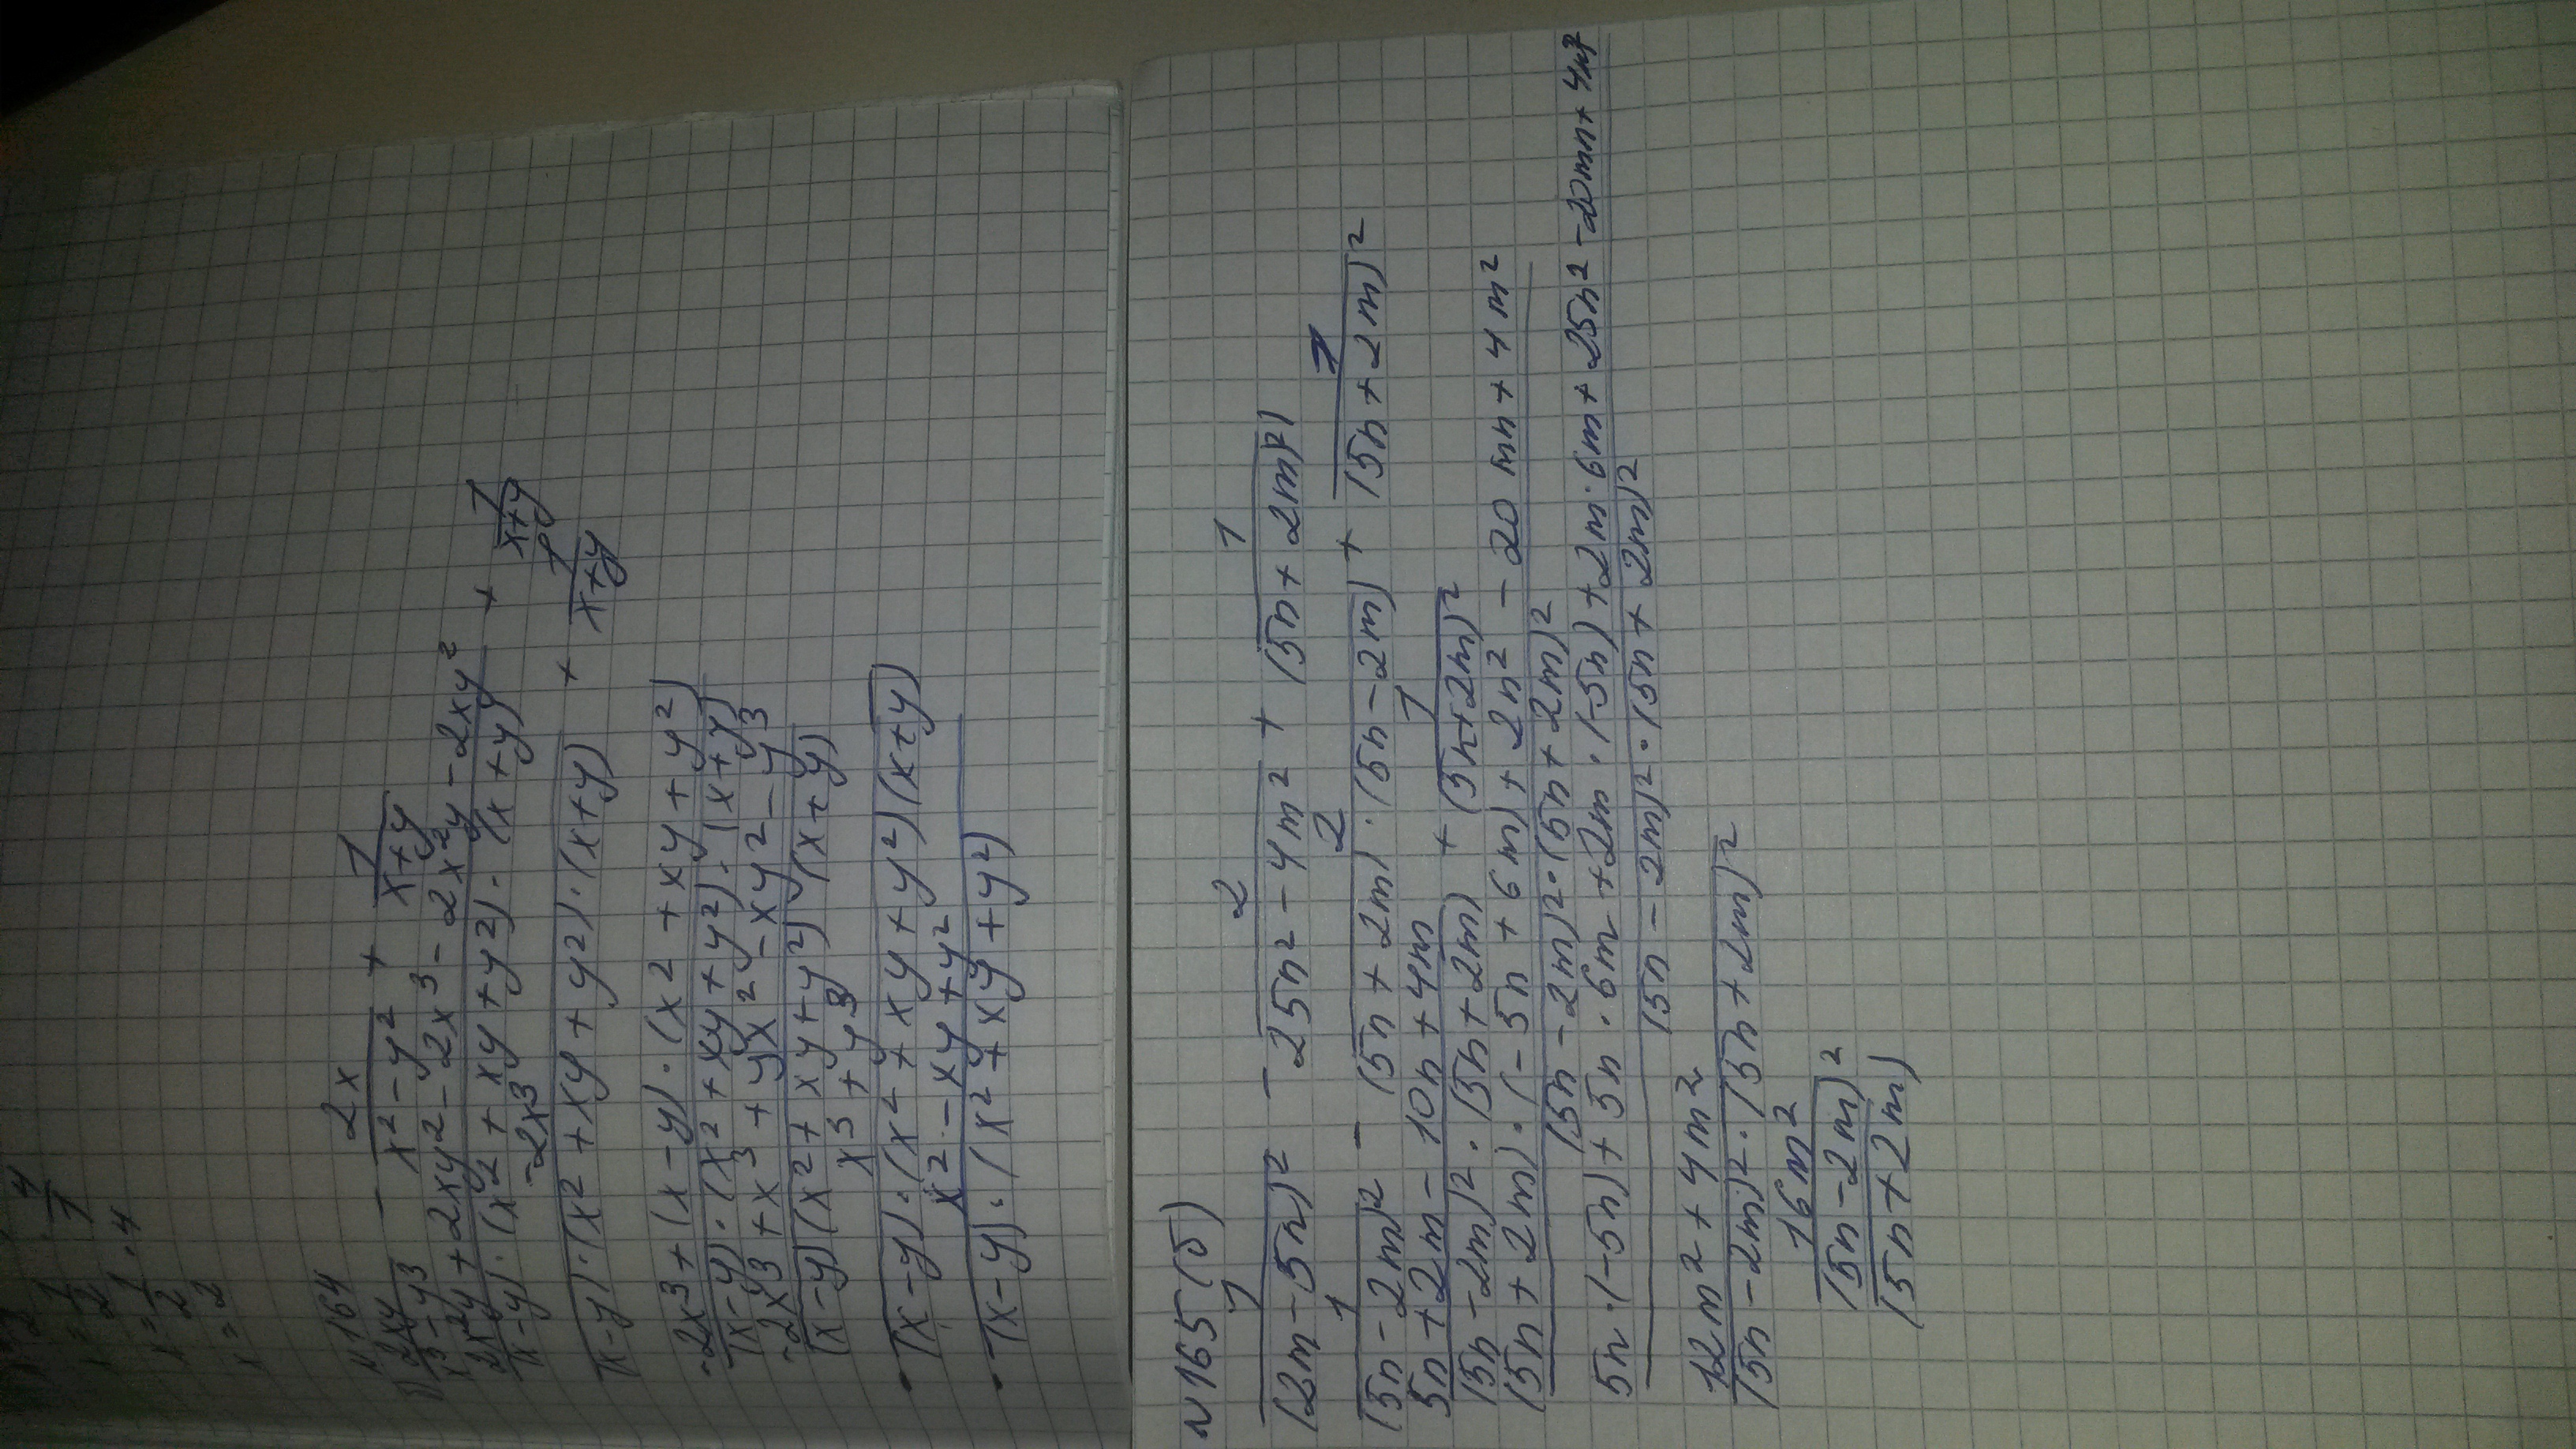 x = 1/2 · 4
x = 2
N 164
2xy/(x³-y³) - 2x/(x²-y²) + 1/(x+y)
2x²y + 2xy² - 2x³ - 2x²y - 2xy²/(x-y)·(x²+xy+y²)·(x+y) + 1/(x+y)
-2x³/(x-y)·(x²+xy+y²)·(x+y) + 1/(x+y)
-2x³+(x-y)·(x²+xy+y²)/(x-y)·(x²+xy+y²)·(x+y)
-2x³+x³+yx²-xy²-y³/(x-y)(x²+xy+y²)(x+y)
x³+y³/(x-y)·(x²+xy+y²)(x+y)
x²-xy+y²/(x-y)·(x²+xy+y²)
N 165(б)
1/(2m-5n)² - 2/25n²-4m² + 1/(5n+2m)²
1/(5n-2m)² - 2/(5n+2m)·(5n-2m) + 1/(5n+2m)²
5n+2m-10n+4m/(5n-2m)²·(5n+2m) + 1/(5n+2m)²
(5n+2m)·(-5n+6m)+2n²-20mn+4m²/(5n-2m)²·(5n+2m)²
5n·(-5n)+5n·6m+2m·(-5n)+2m·6m+25n²-20mn+4m²/(5n-2m)²·(5n+2m)²
12m²+4m²/(5n-2m)²·(5n+2m)²
16m²/(5n-2m)²
(5n+2m)